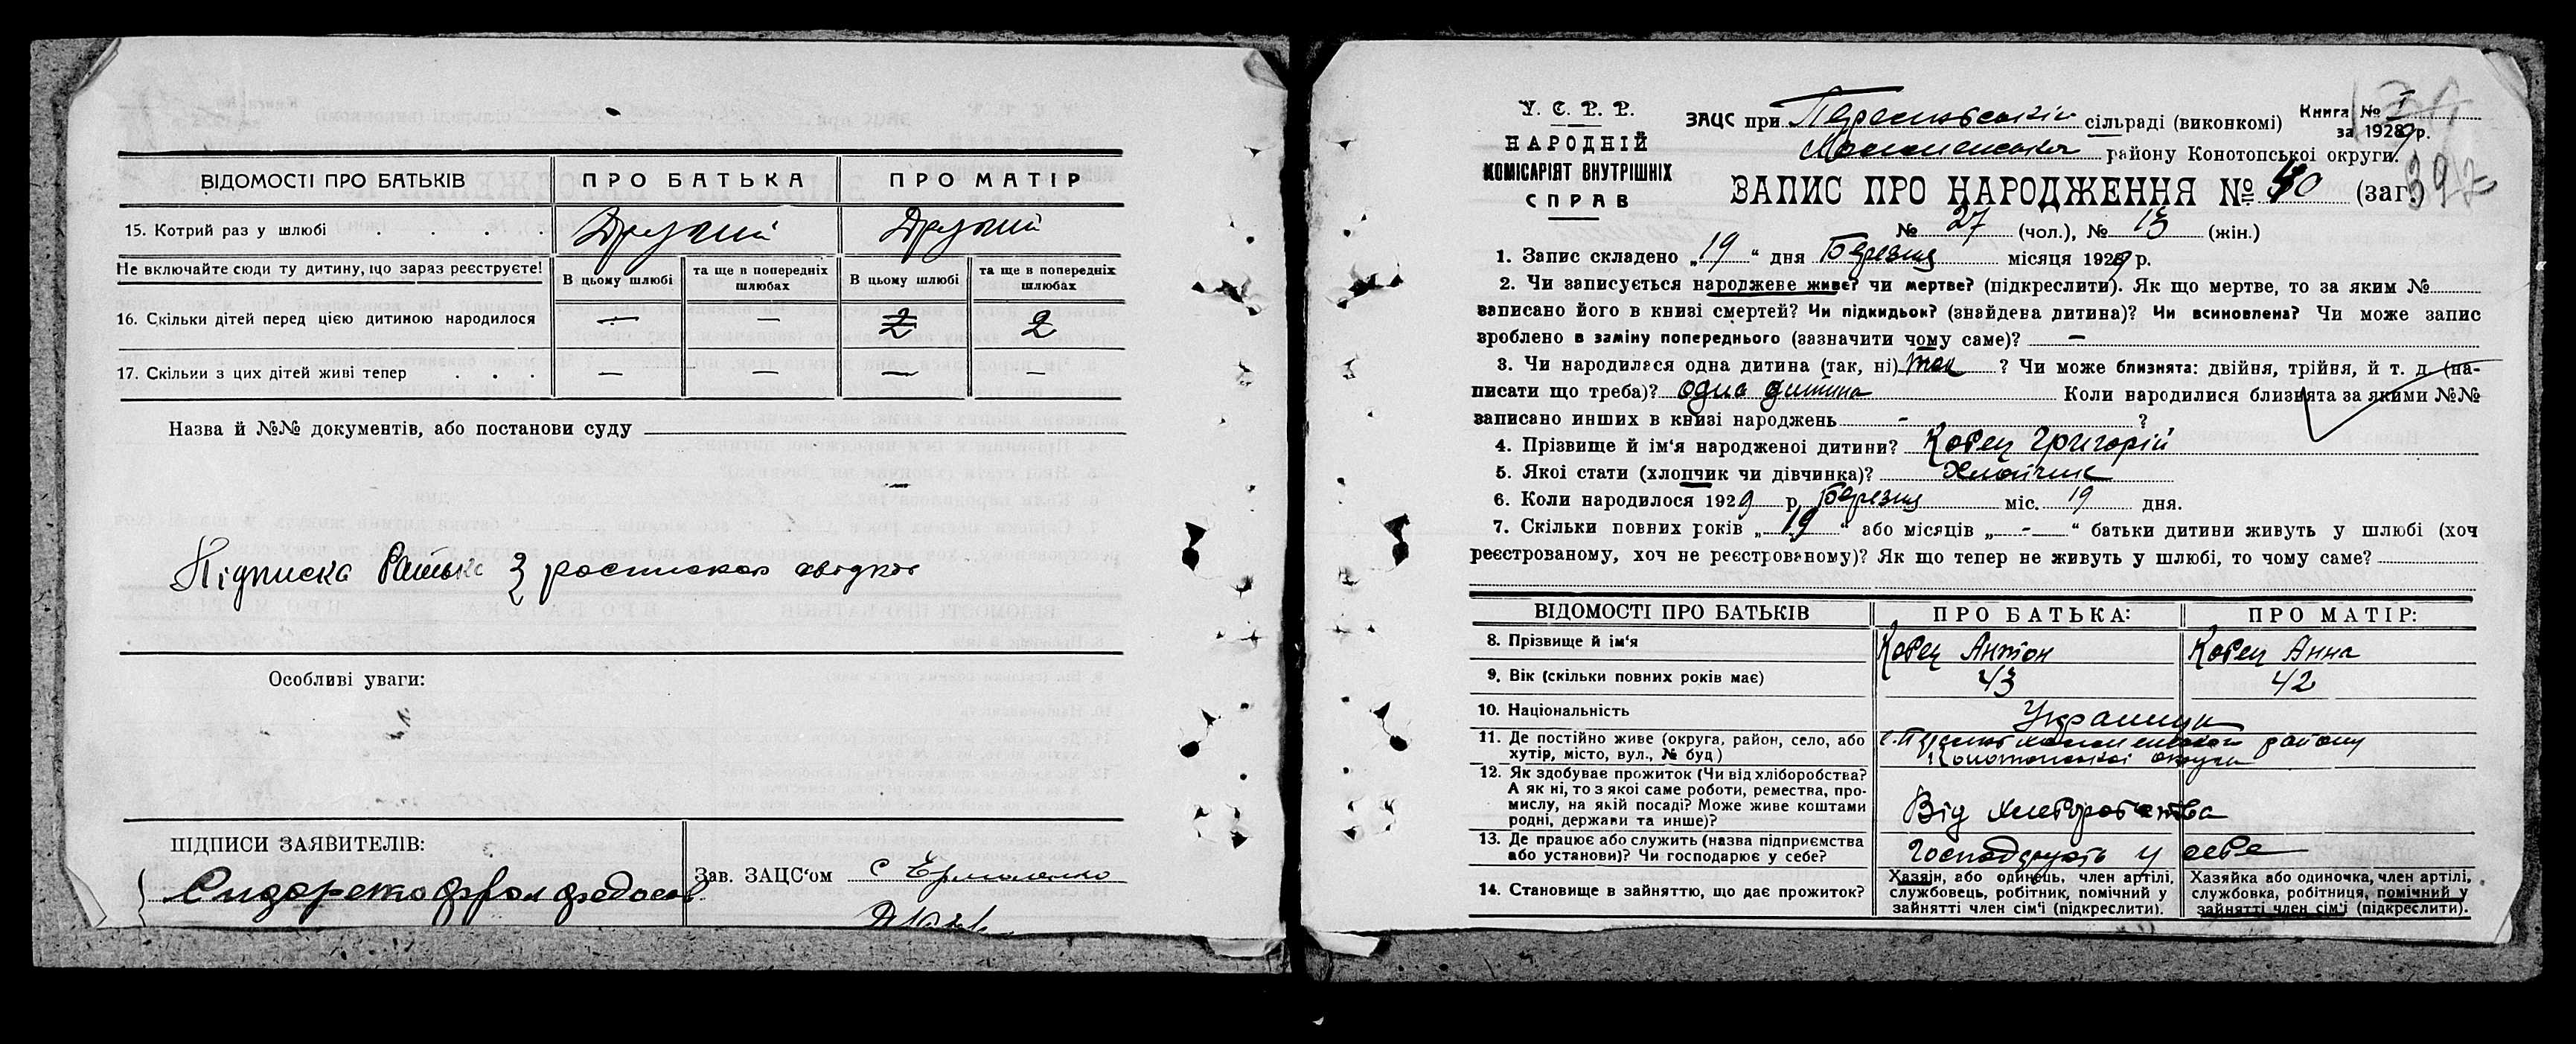 ВІДОМОСТІ ПРО БАТЬКІВ ПРО БАТЬКА ПРО МАТІР
15. Котрий раз у шлюбі . . . . Другий Другий
Не включайте сюди ту дитину, що зараз реєструєте! В цьому шлюбі та ще в попередніх шлюбах В цьому шлюбі та ще в попередніх шлюбах
16. Скільки дітей перед цією дитиною народилося — — 2 2
17. Скільки з цих дітей живі тепер . . . — — — —
Назва й №№ документів, або постанови суду
—
Підписка батька з
Особливі уваги:
ПІДПИСИ ЗАЯВИТЕЛІВ:
Зав. ЗАЦС'ом С Ермоленко
У. С. Р. Р.
НАРОДНІЙ
КОМІСАРІЯТ ВНУТРІШНІХ
СПРАВ
ЗАЦС при сільраді (виконкомі)
Книга № I
за 1929 р.
району Конотопської округи.
ЗАПИС ПРО НАРОДЖЕННЯ № 40 (заг.)
№ 27 (чол.), № 13 (жін.)
1. Запис складено „19“ дня Березня місяця 1929 р.
2. Чи записується народжеве живе? чи мертве? (підкреслити). Як що мертве, то за яким №
записано його в книзі смертей? Чи підкидьок? (знайдена дитина)? Чи всиновлена? Чи може запис
зроблено в заміну попереднього (зазначити чому саме)? —
3. Чи народилася одна дитина (так, ні) так ? Чи може близнята: двійня, трійня, й т. д. (на-
писати що треба)? одна дитина Коли народилися близнята за якими №№
записано инших в книзі народжень - ?
4. Прізвище й ім'я народженої дитини? Кобец Григорій
5. Якої стати (хлопчик чи дівчинка)? Хлопчик
6. Коли народилося 1929 р. Березня міс. 19 дня.
7. Скільки повних років „19“ або місяців „-“ батьки дитини живуть у шлюбі (хоч
реєстрованому, хоч не реєстрованому)? Як що тепер не живуть у шлюбі, то чому саме?
ВІДОМОСТІ ПРО БАТЬКІВ ПРО БАТЬКА: ПРО МАТІР:
8. Прізвище й ім'я Кобец Антон Кобец Анна
9. Вік (скільки повних років має) 43 42
10. Національність Українці
11. Де постійно живе (округа, район, село, або
хутір, місто, вул., № буд) району
Конотопської округи
12. Як здобуває прожиток (Чи від хліборобства?
А як ні, то з якої саме роботи, ремества, про-
мислу, на якій посаді? Може живе коштами
родні, держави та инше)? Від хліборобства
13. Де працює або служить (назва підприємства
або установи)? Чи господарює у себе? Господарують у себе
14. Становище в зайняттю, що дає прожиток?
Хазяїн, або одинець, член артілі,
службовець, робітник, помічний у
зайнятті член сім'ї (підкреслити).
Хазяйка або одиночка, член артілі,
службовка, робітниця, помічний у
зайнятті член сім'ї (підкреслити).